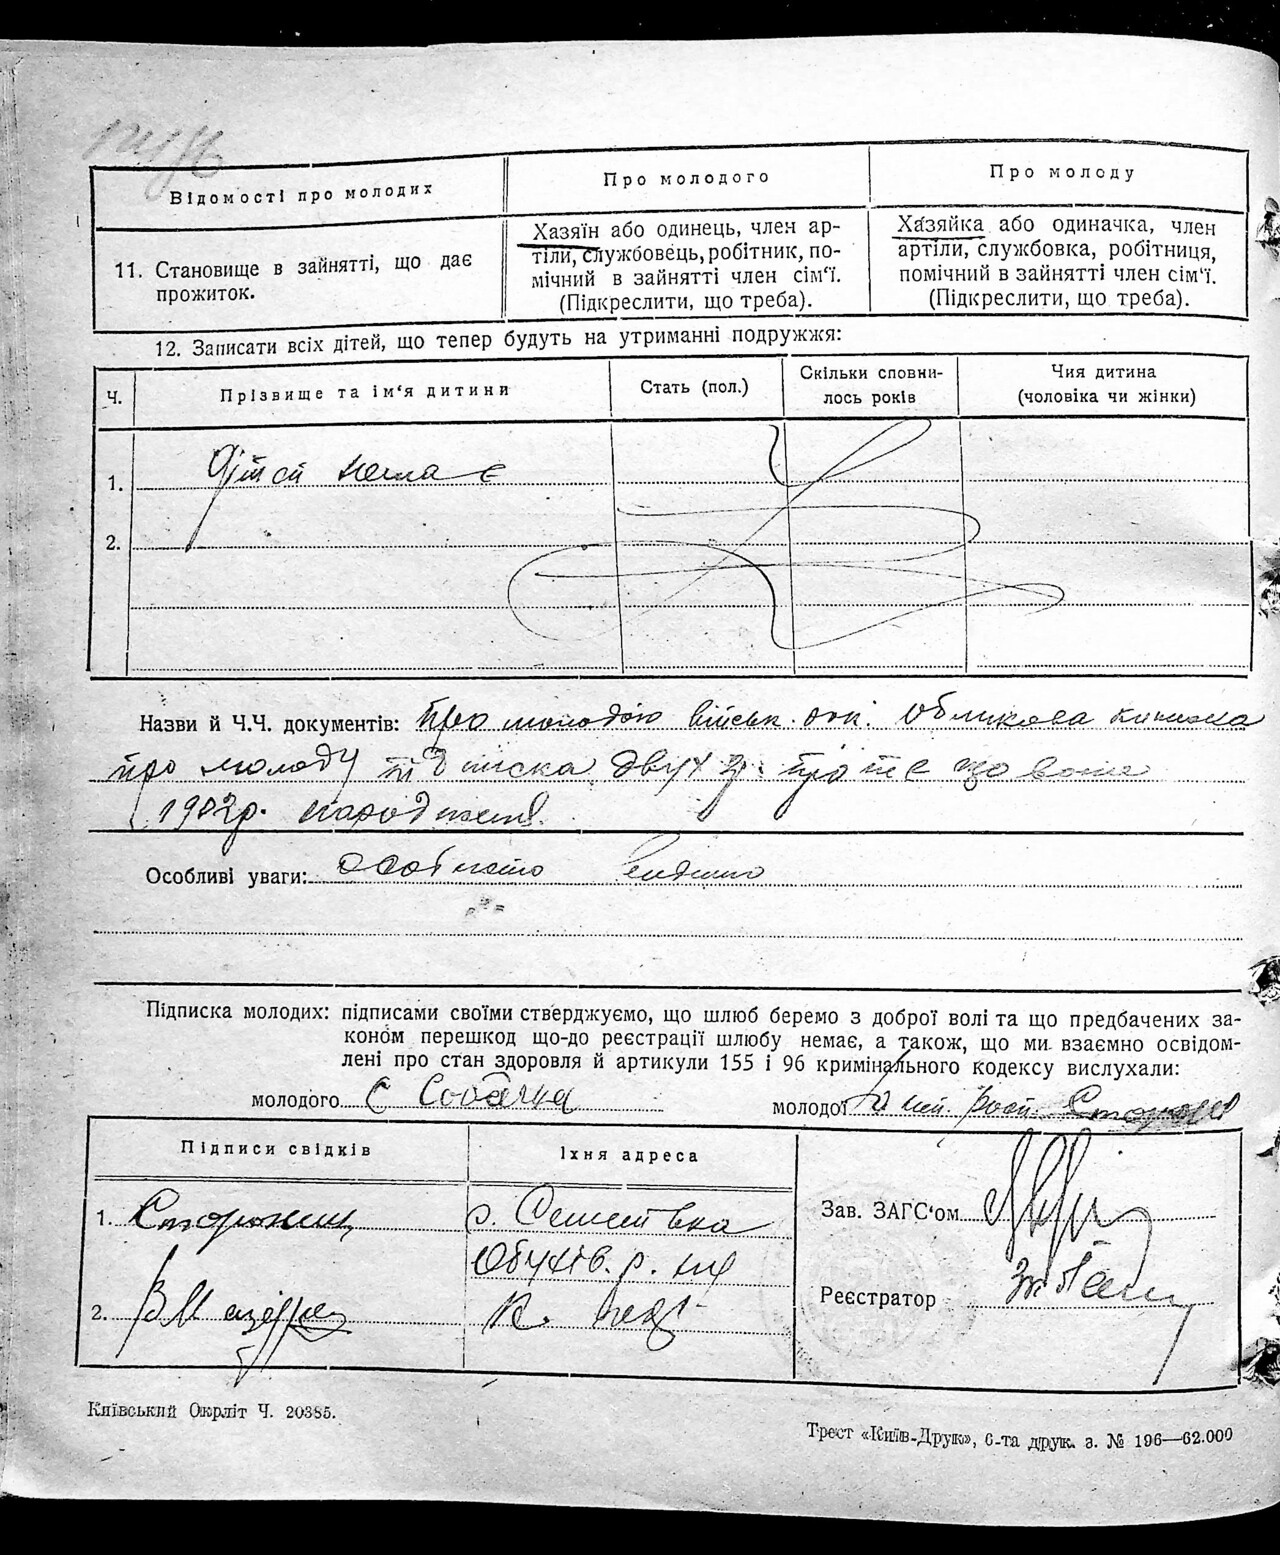 Відомості про молодих
Про молодого
Про молоду
11. Становище в зайнятті, що дає
прожиток.
Хазяїн або одинець, член ар-
тіли, службовець, робітник, по-
мічний в зайнятті член сім'ї.
(Підкреслити, що треба).
Хазяйка або одиначка, член
артіли, службовка, робітниця,
помічний в зайнятті член сім'ї.
(Підкреслити, що треба).
12. Записати всіх дітей, що тепер будуть на утриманні подружжя:
Ч.
Прізвище та ім'я дитини
Стать (пол.)
Скільки сповни-
лось років
Чия дитина
(чоловіка чи жінки)
1. Дітей немає
2.
Назви й Ч.Ч. документів: Про молодого військ. обликова книжка
про молоду підписка двух гр. про те що вона
1902р. народження.
Особливі уваги: особисто
Підписка молодих: підписами своїми стверджуємо, що шлюб беремо з доброї волі та що предбачених за-
коном перешкод що-до реєстрації шлюбу немає, а також, що ми взаємно освідом-
лені про стан здоровля й артикули 155 і 96 кримінального кодексу вислухали:
молодого С Собачка
молодої
Підписи свідків
Їхня адреса
1. Сторожиц
с. Семенівка
Обухів. р. на
2.
К.
Зав. ЗАГС'ом
Реєстратор
Київський Окрліт Ч. 20385.
Трест «Київ-Друк», 6-та друк. з. № 196—62.000